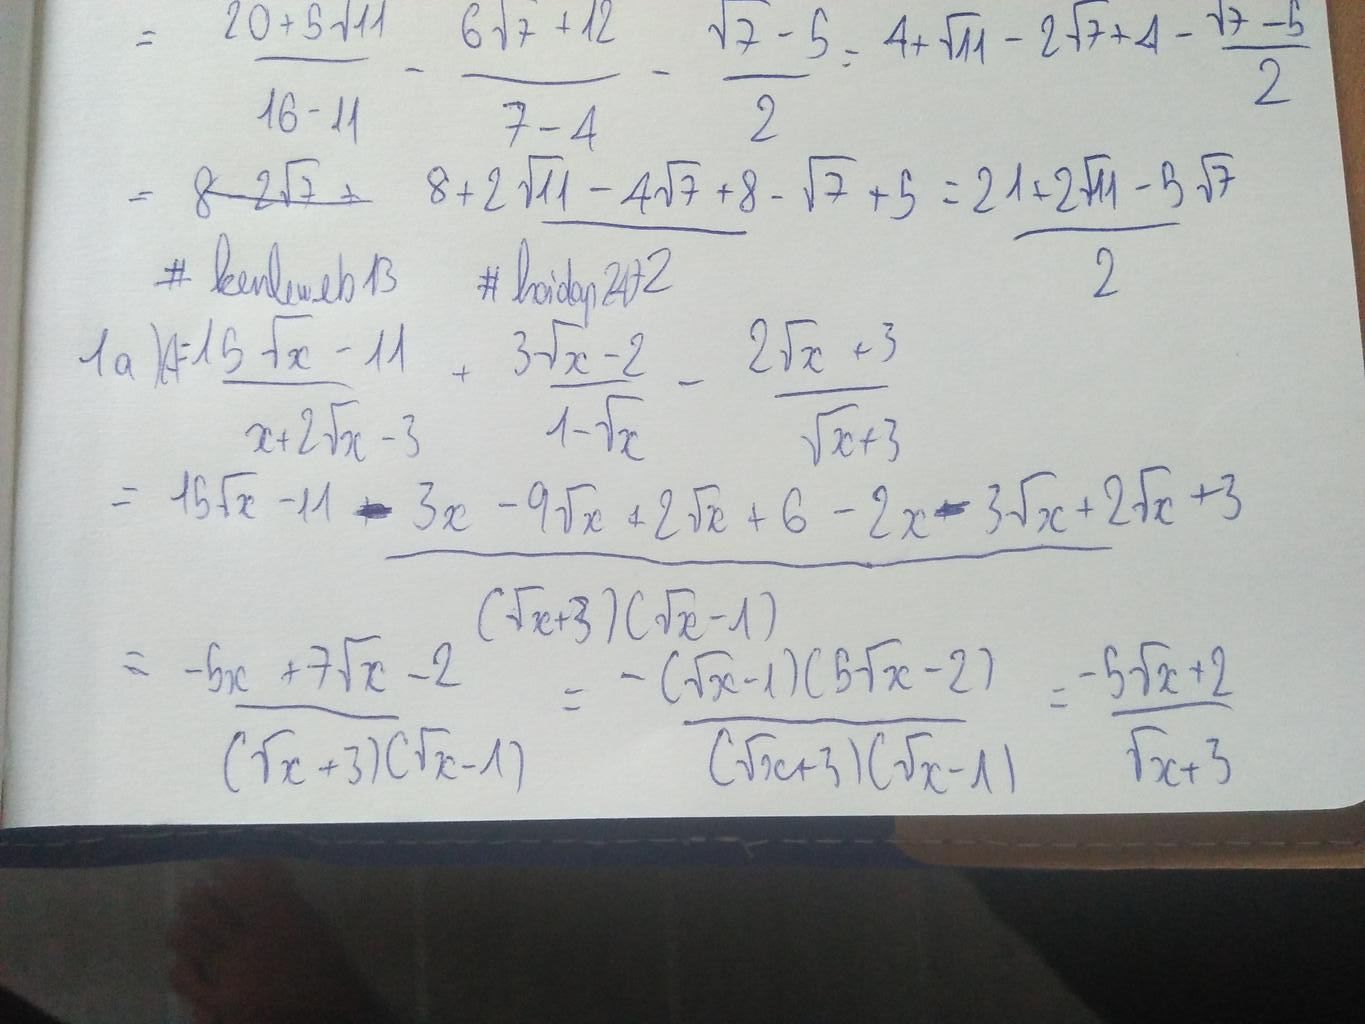 = (20+5√11)/(16-11) - (6√7+12)/(7-4) - (√7-5)/2 = 4+√11-2√7+4-(√7-5)/2
= 8-2√7+ (8+2√11-4√7+8-√7+5 = (21+2√11-5√7)/2
# kenleweb13 # hoidap247 2
1a) A=(15√x-11)/(x+2√x-3) + (3√x-2)/(1-√x) - (2√x+3)/(√x+3)
= (15√x-11-3x-9√x+2√x+6-2x-3√x+2√x+3)/((√x+3)(√x-1))
= (-5x+7√x-2)/((√x+3)(√x-1)) = (-(√x-1)(5√x-2))/((√x+3)(√x-1)) = (-5√x+2)/(√x+3)